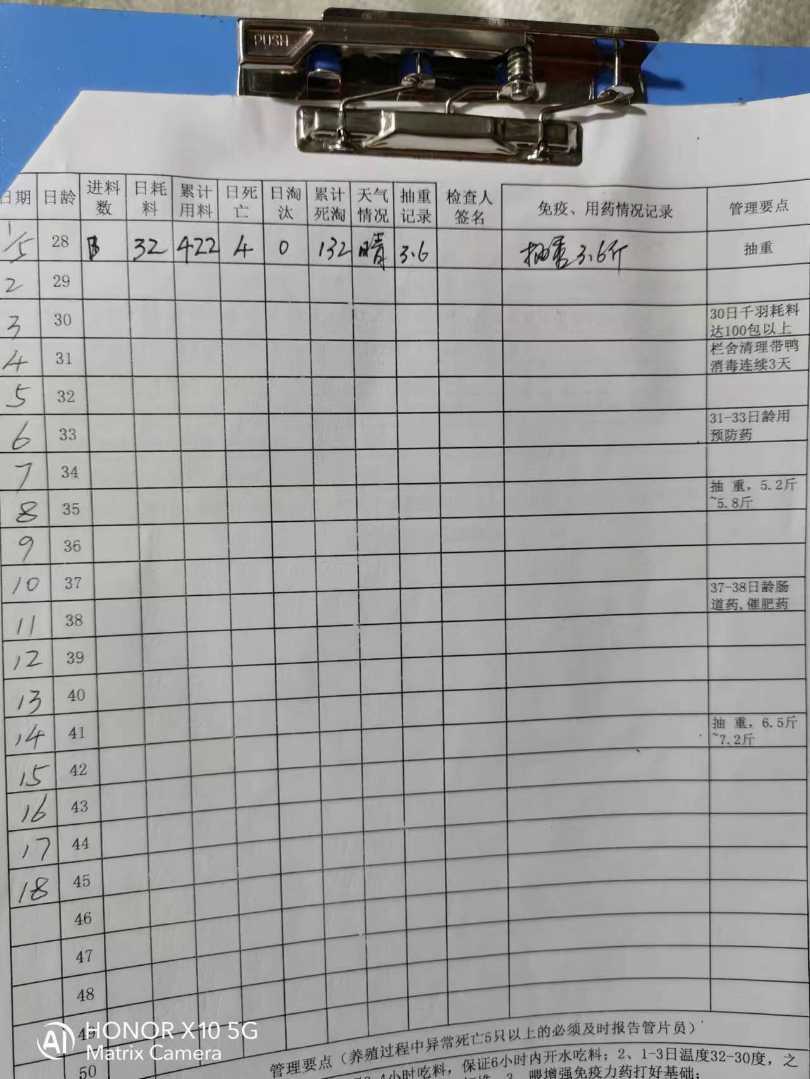 PUSH
日期 日龄 进料数 日耗料 累计用料 日死亡 日淘汰 累计死淘 天气情况 抽重记录 检查人签名 免疫、用药情况记录 管理要点
1/5 28 32 422 4 0 132 晴 3.6 抽重3.6斤 抽重
2 29
3 30 30日千羽耗料达100包以上
4 31 栏舍清理带鸭消毒连续3天
5 32
6 33 31-33日龄用预防药
7 34
8 35 抽 重，5.2斤~5.8斤
9 36
10 37 37-38日龄肠道药,催肥药
11 38
12 39
13 40
14 41 抽 重，6.5斤~7.2斤
15 42
16 43
17 44
18 45
46
47
48
49
50
管理要点（养殖过程中异常死亡5只以上的必须及时报告管片员）
4小时吃料，保证6小时内开水吃料；2、1-3日温度32-30度，之
3、喂增强免疫力药打好基础；
HONOR X10 5G
Matrix Camera